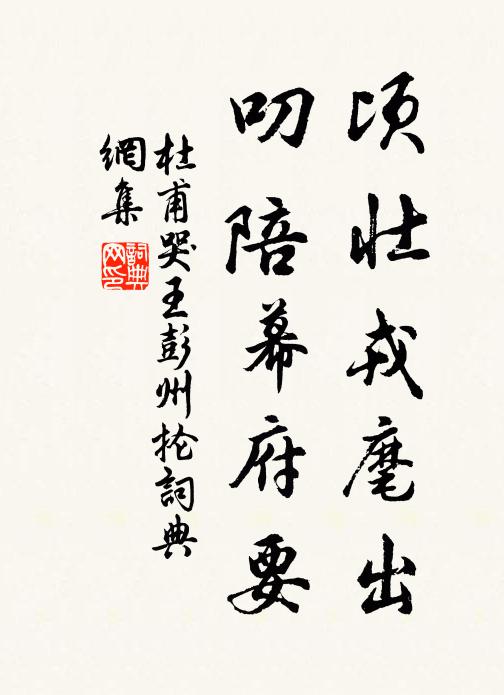 頃壮戎麾出
叨陪幕府要
杜甫哭王彭州抡詞典
網集
詞典网印